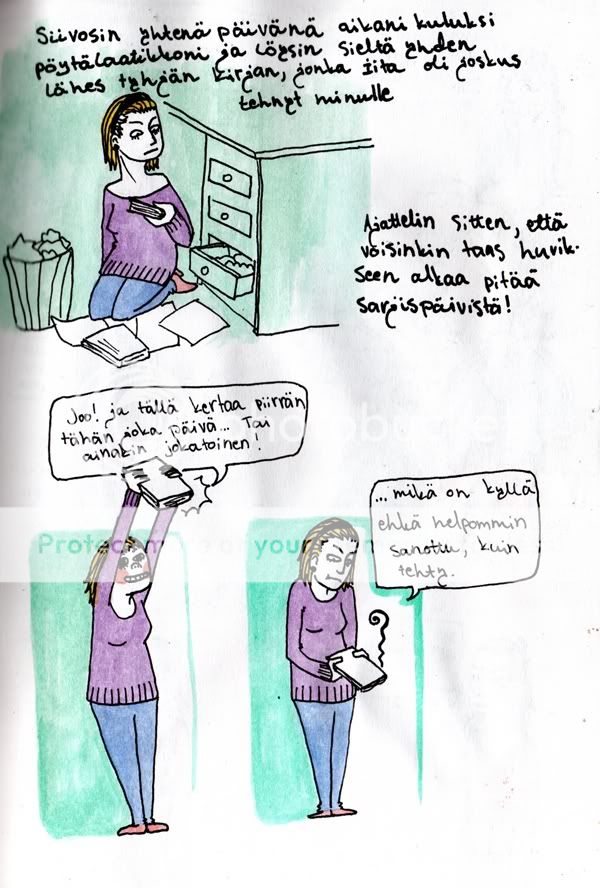 Siivosin yhtenä päivänä aikani kuluksi
pöytälaatikkoni ja löysin sieltä yhden
lähes tyhjän kirjan, jonka Iita oli joskus
tehnyt minulle
Ajattelin sitten, että
voisinkin taas huvik-
seen alkaa pitää
sarjispäivistä!
Joo! ja tällä kertaa piirrän
tähän joka päivä... Tai
ainakin jokatoinen!
... mikä on kyllä
ehkä helpommin
sanottu, kuin
tehty.